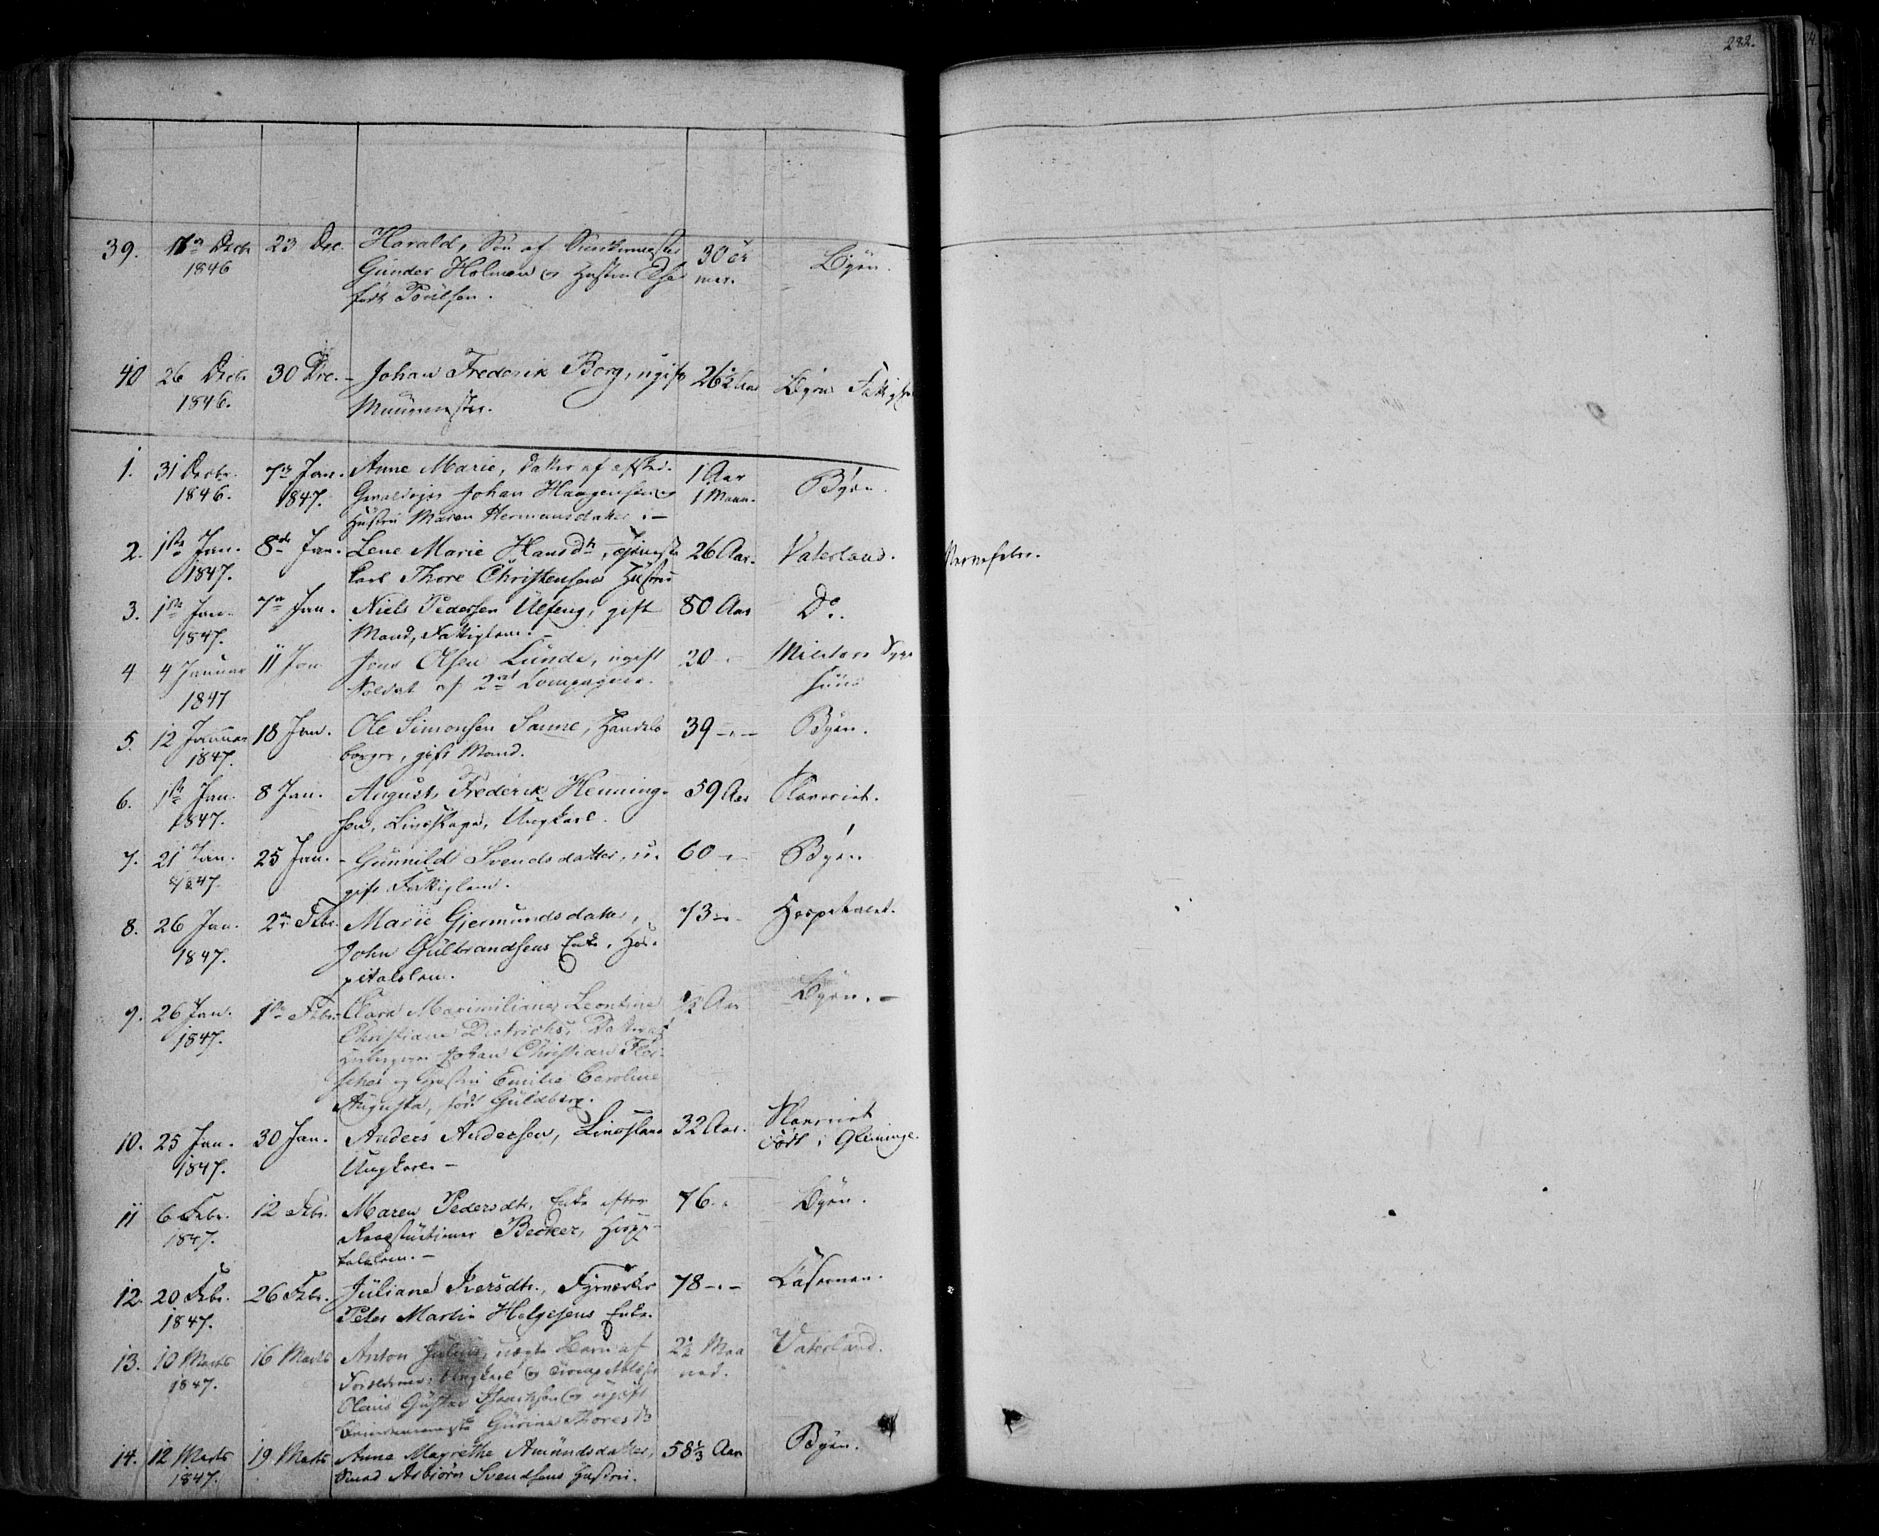 282.
39. 17de Decbr 23 Dec. Harald, Søn af
1846 Gunder Holmen og Hustru Else 30 Ti
født Poulsen. mer. Byen.
40 26 Decbr 30 Dec. Johan Frederik Borg, ugift 26½ Aar Byens
1846. Muurmester.
1. 31 Decbr. 7de Jan. Anne Marie, Datter af 1 Aar
1846. 1847. Johan Haagensen og 1 Maan. Byen.
Hustru Maren Hermansdatter.
2. 1ste Jan. 8de Jan. Lene Marie Hansdtr, 26 Aar. Vaterland. Nervefeber.
1847. karl Thore Christensens Hustru
3. 1ste Jan. 7de Jan. Niels Pedersen Ulfeng, gift 80 Aar Do.
1847. Mand, Fattiglem.
4 4 Januar 11 Jan Jens Olsen Lunde, ugift 20 Militære Syge
1847 Soldat af 2det Compagnie. huus
5. 12 Januar 18 Jan. Ole Simonsen Sanne, Handels 39 -"- Byen.
1847. borger, gift Mand.
6. 1ste Jan. 8 Jan. August Frederik Henning- 59 Aar Slaveriet.
1847. sen, Livsslave, Ungkarl.
7. 21 Jan. 25 Jan. Gunnild Svendsdatter, u- 60 -"- Byen
1847. gift Fattiglem.
8. 26 Jan. 2den Febr. Marie Gjermundsdatter, 73 -"- Hospitalet.
1847. John Gulbrandsens Enke, Hos-
pitalslem.
9. 26 Jan. 1ste Febr. Clara Maximiliane Leontine ½ Aar Byen.
1847. Christiane Dietrichs, Datter af
Johan Christian
og Hustru Emilie Caroline
Augusta, født Guldberg.
10. 25 Jan. 30 Jan. Anders Andersen, Livsslave 32 Aar. Slaveriet
1847. Ungkarl. født i Glemminge.
11 6 Febr. 12 Febr. Maren Pedersdtr, Enke efter 76 -"- Byen.
1847. Becker, Hospi-
talslem.
12. 20 Febr. 26 Febr. Juliane Iversdtr., Fyrværker 78 -"- Casernen.
1847. Peter Martin Helgesens Enke.
13. 10 Marts 16 Marts Anton Julius, uægte Barn af 2½ Maa Vaterland.
1847. Ungkarl og ned.
Olaus Gustav og ugift
Gurine Thoresdtr
14. 12 Marts 19 Marts Anna Magrethe Amundsdatter, 58⅓ Aar Byen.
1847. Smed Asbiørn Svendsens Hustru.